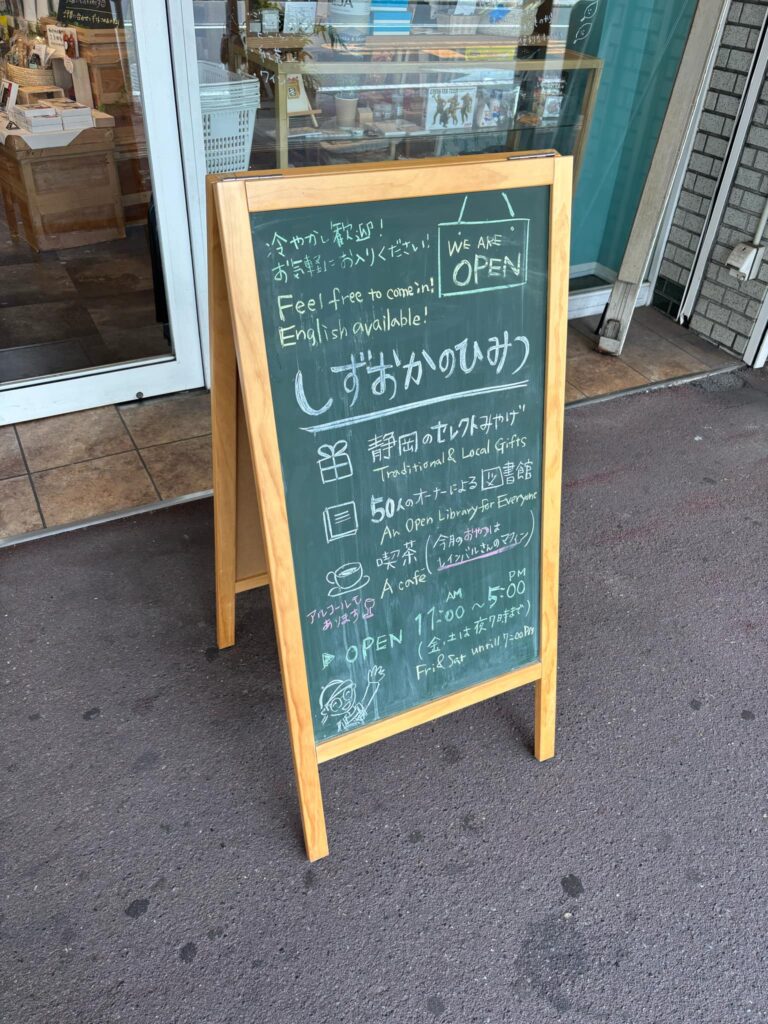 冷やかし歓迎!
お気軽にお入りください!
WE ARE
OPEN
Feel free to come in!
English available!
しずおかのひみつ
静岡のセレクトみやげ
Traditional & Local Gifts
50人のオーナーによる図書館
An Open Library for Everyone
喫茶
(今月のおやつは
レインバルさんのマフィン)
A café
アルコールも
あります
AM
PM
▶ OPEN 11:00 ~ 5:00
(金、土は夜7時まで)
Fri & Sat untill 7:00PM